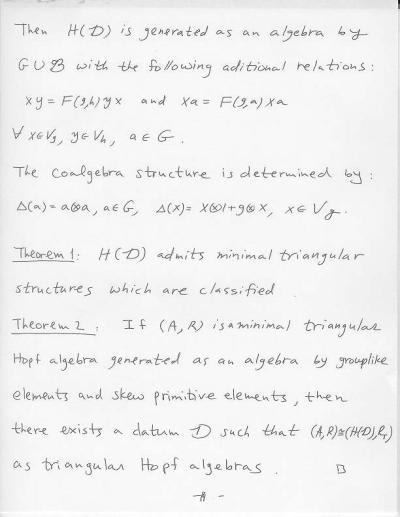 Then H(D) is generated as an algebra by
G∪B with the following aditional relations:
xy = F(g,h)yx and xa = F(g,a)xa
∀ x∈Vg, y∈Vh, a∈G.
The coalgebra structure is determined by:
Δ(a)=a⊗a, a∈G, Δ(x)= x⊗1+g⊗x, x∈Vg.
Theorem 1: H(D) admits minimal triangular
structures which are classified
Theorem 2: If (A,R) is a minimal triangular
Hopf algebra generated as an algebra by grouplike
elements and skew primitive elements, then
there exists a datum D such that (A,R)≅(H(D),RT)
as triangular Hopf algebras. □